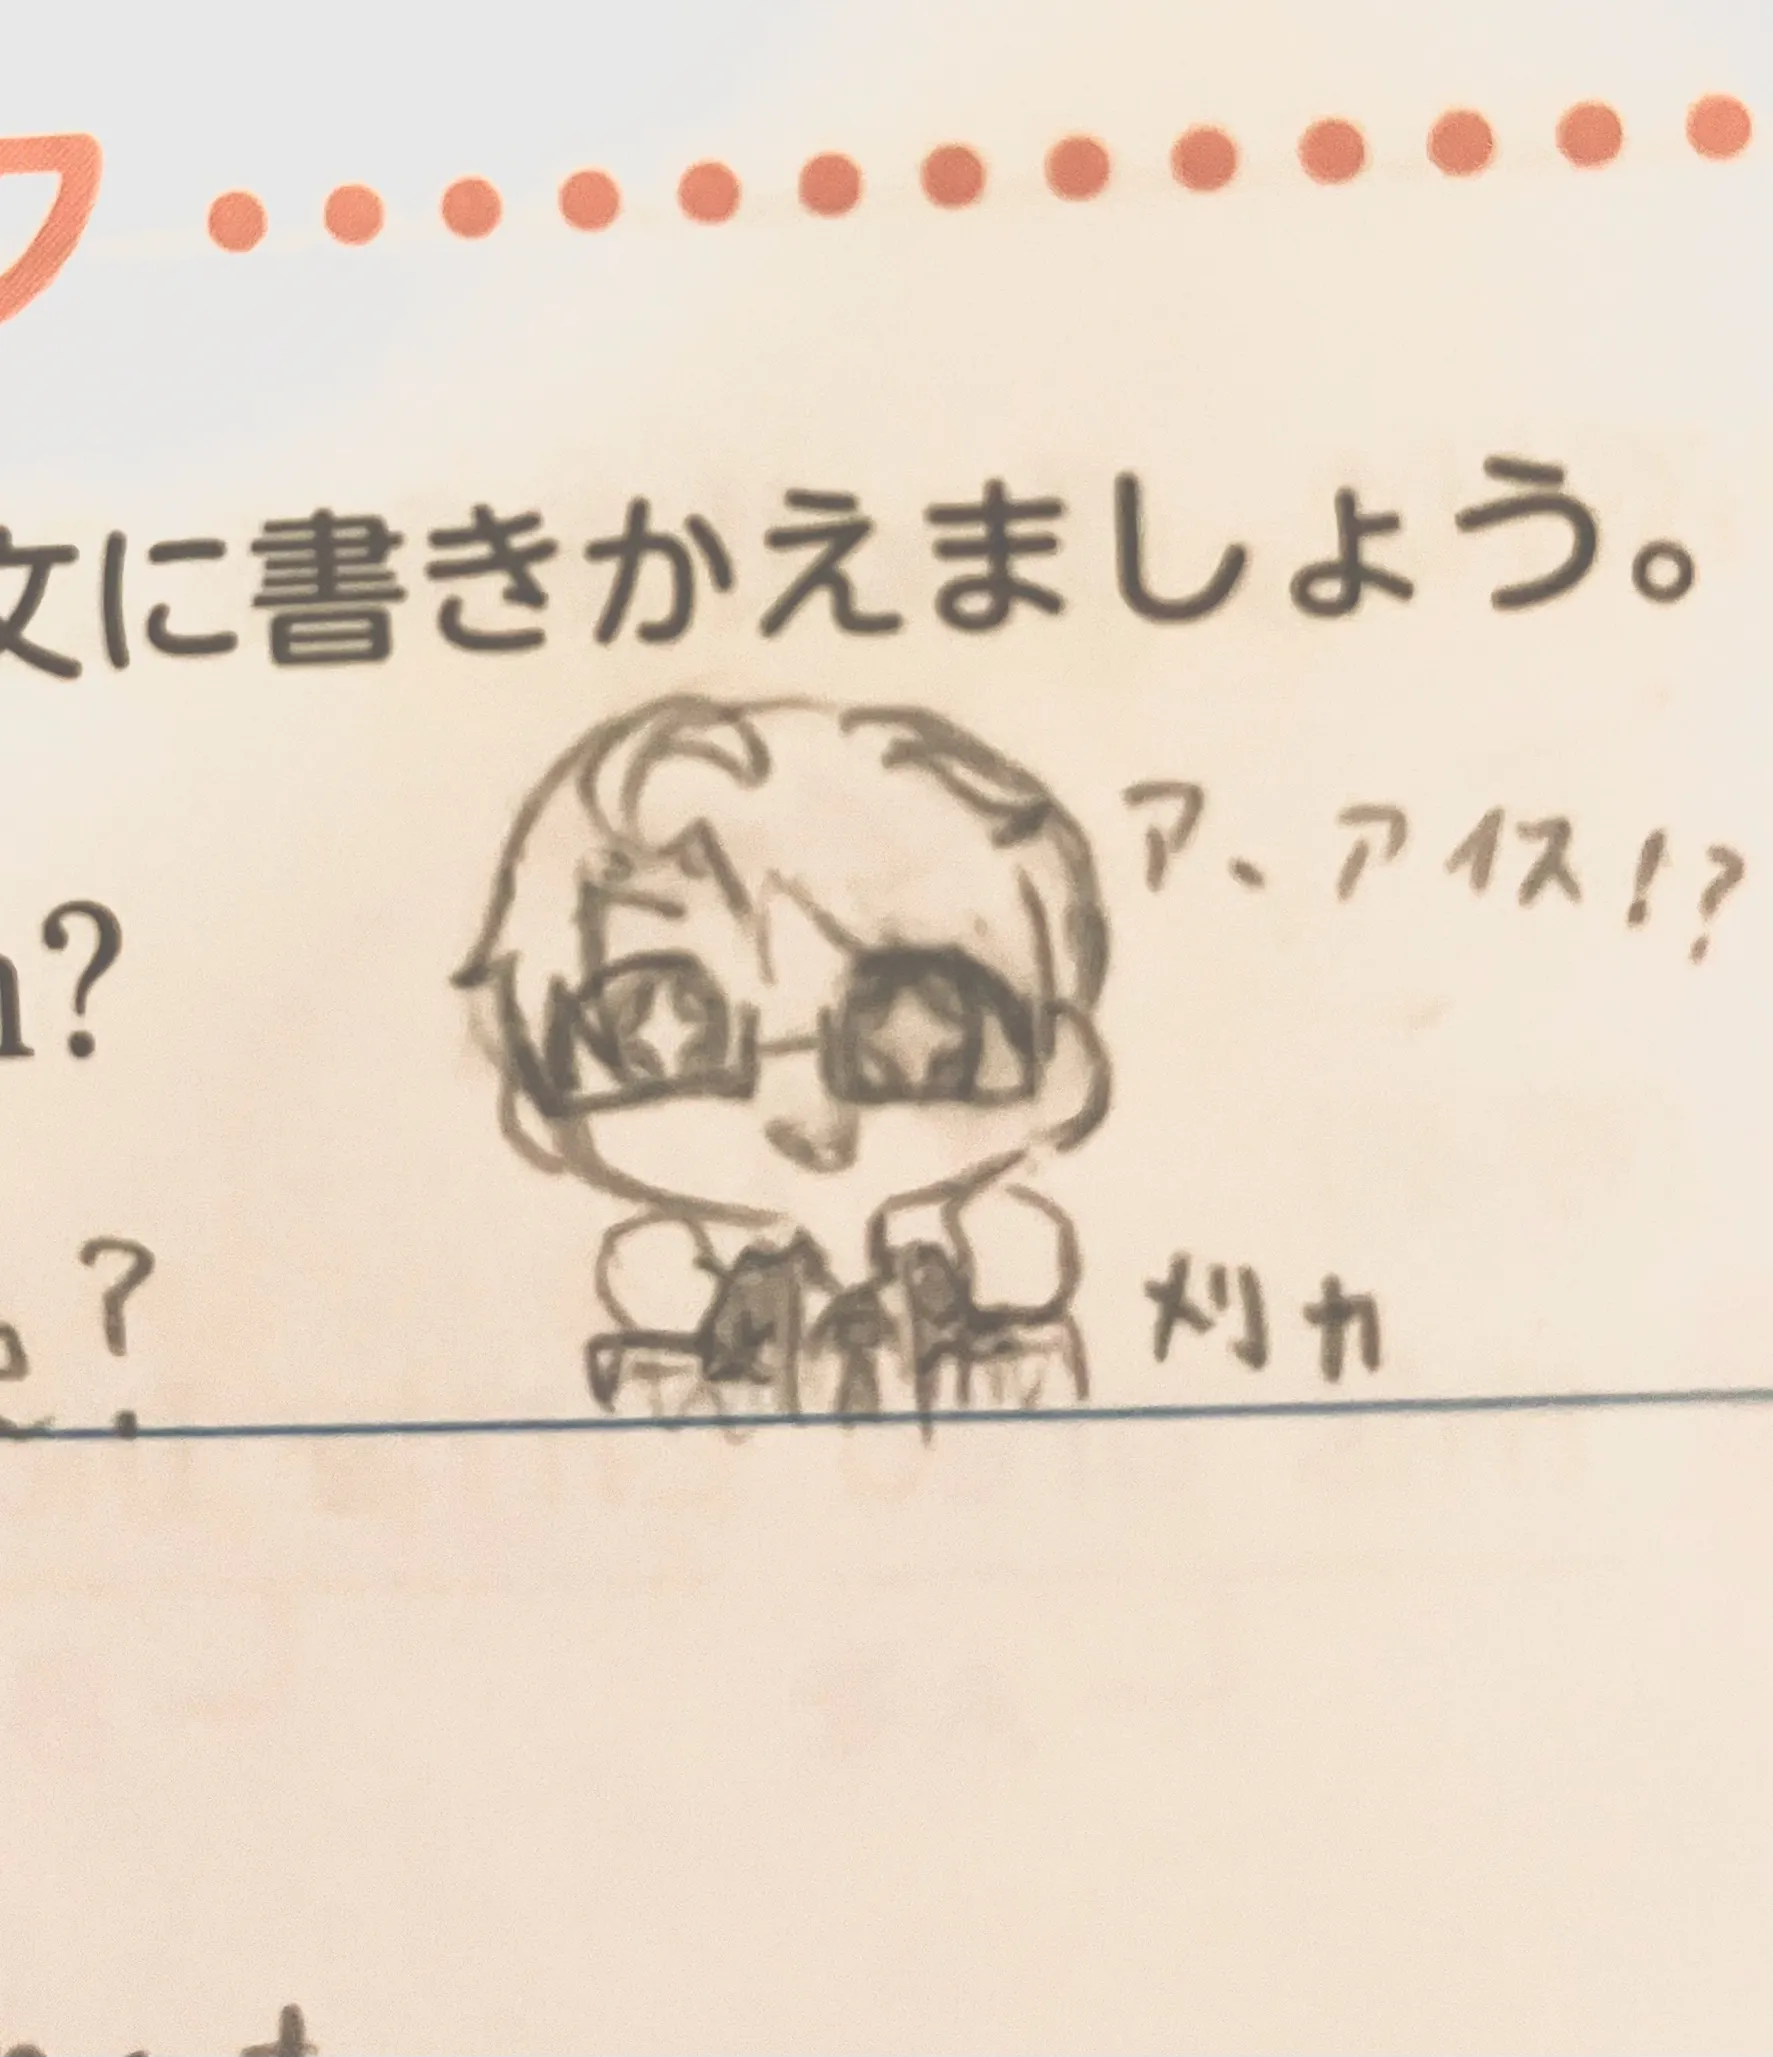 文に書きかえましょう。
ア、アイス!?
?
?
刈カ